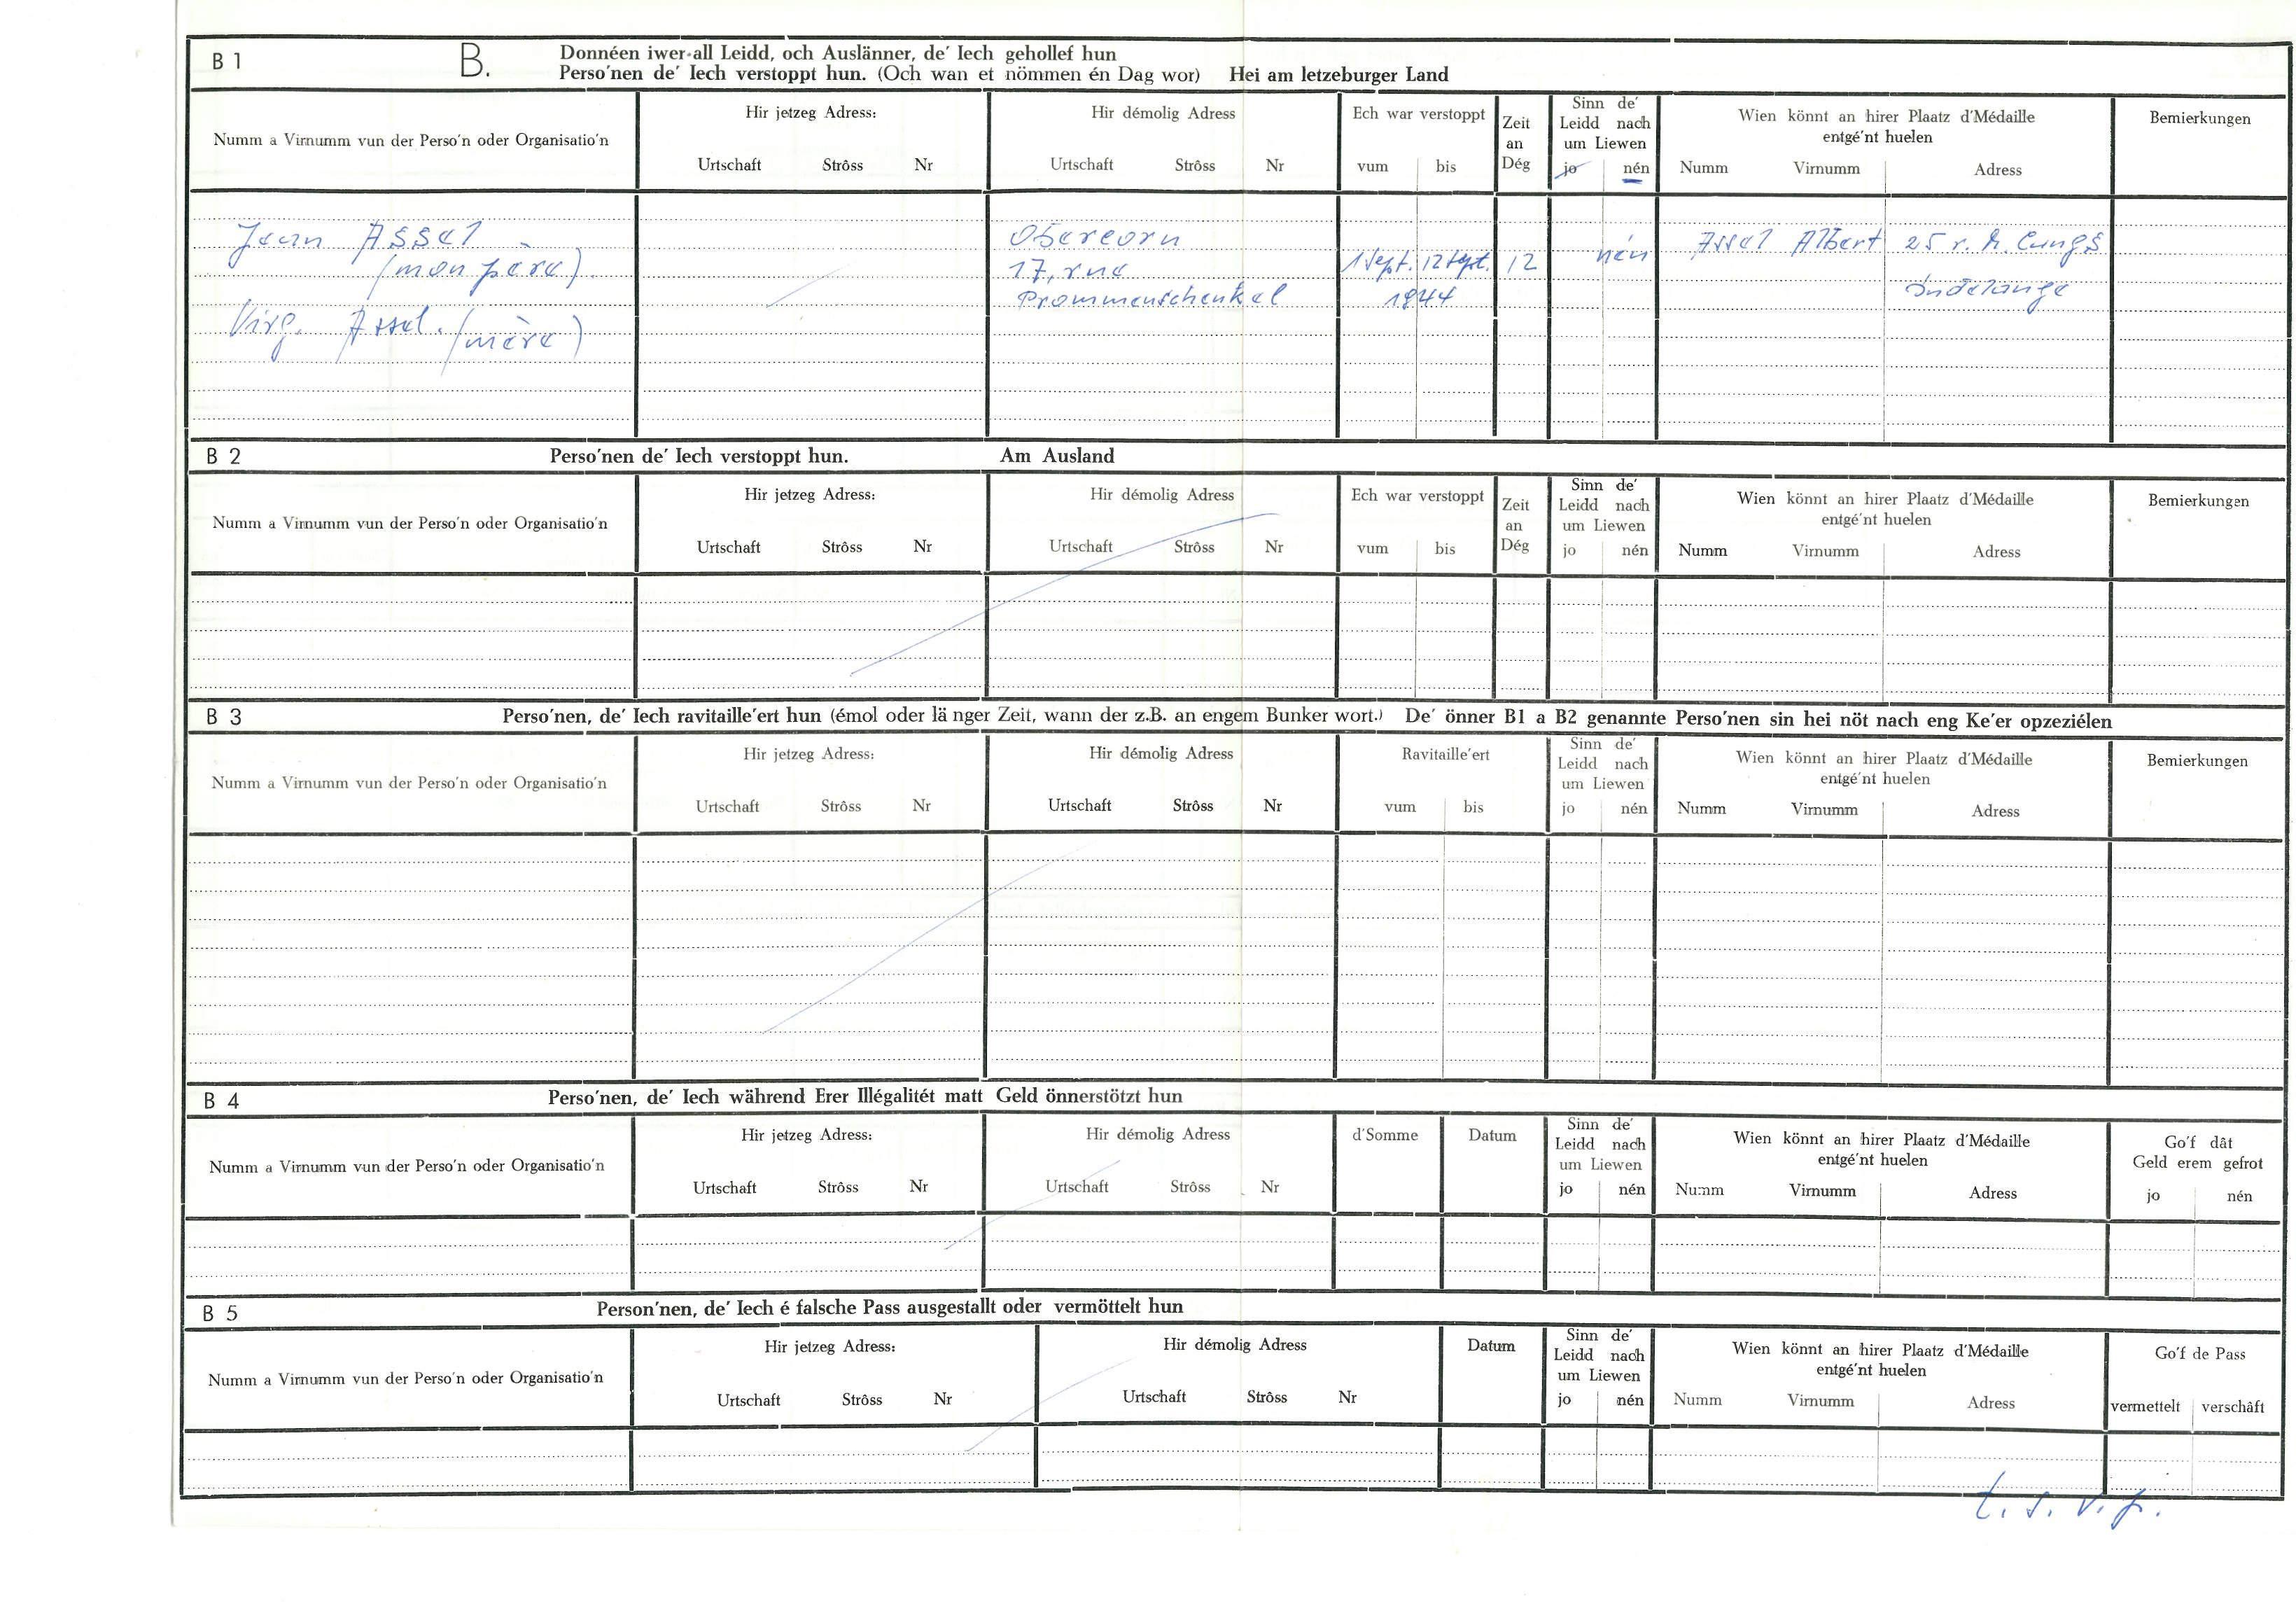 B 1
B.
Donnéen iwer all Leidd, och Auslänner, de' Iech gehollef hun
Perso'nen de' Iech verstoppt hun. (Och wan et nömmen én Dag wor) Hei am letzeburger Land
Numm a Virnumm vun der Perso'n oder Organisatio'n
Hir jetzeg Adress:
Urtschaft Strôss Nr
Hir démolig Adress
Urtschaft Strôss Nr
Ech war verstoppt
vum bis
Zeit
an
Dég
Sinn de'
Leidd nach
um Liewen
jo nén
Wien könnt an hirer Plaatz d'Médaille
entgé'nt huelen
Numm Virnumm Adress
Bemierkungen
Jean Assel
(mon père).
Virg. Assel. (mère)
Obercorn
17, rue
Prommenschenkel
1 Sept. 12 Sept.
1944
12
nén
Assel Albert 25 r.
B 2
Perso'nen de' Iech verstoppt hun. Am Ausland
Numm a Virnumm vun der Perso'n oder Organisatio'n
Hir jetzeg Adress:
Urtschaft Strôss Nr
Hir démolig Adress
Urtschaft Strôss Nr
Ech war verstoppt
vum bis
Zeit
an
Dég
Sinn de'
Leidd nach
um Liewen
jo nén
Wien könnt an hirer Plaatz d'Médaille
entgé'nt huelen
Numm Virnumm Adress
Bemierkungen
B 3
Perso'nen, de' Iech ravitaille'ert hun (émol oder länger Zeit, wann der z.B. an engem Bunker wort.) De' önner B1 a B2 genannte Perso'nen sin hei nöt nach eng Ke'er opzeziélen
Numm a Virnumm vun der Perso'n oder Organisatio'n
Hir jetzeg Adress:
Urtschaft Strôss Nr
Hir démolig Adress
Urtschaft Strôss Nr
Ravitaille'ert
vum bis
Sinn de'
Leidd nach
um Liewen
jo nén
Wien könnt an hirer Plaatz d'Médaille
entgé'nt huelen
Numm Virnumm Adress
Bemierkungen
B 4
Perso'nen, de' Iech während Erer Illégalitét matt Geld önnerstötzt hun
Numm a Virnumm vun der Perso'n oder Organisatio'n
Hir jetzeg Adress:
Urtschaft Strôss Nr
Hir démolig Adress
Urtschaft Strôss Nr
d'Somme
Datum
Sinn de'
Leidd nach
um Liewen
jo nén
Wien könnt an hirer Plaatz d'Médaille
entgé'nt huelen
Numm Virnumm Adress
Go'f dât
Geld erem gefrot
jo nén
B 5
Person'nen, de' Iech é falsche Pass ausgestallt oder vermöttelt hun
Numm a Virnumm vun der Perso'n oder Organisatio'n
Hir jetzeg Adress:
Urtschaft Strôss Nr
Hir démolig Adress
Urtschaft Strôss Nr
Datum
Sinn de'
Leidd nach
um Liewen
jo nén
Wien könnt an hirer Plaatz d'Médaille
entgé'nt huelen
Numm Virnumm Adress
Go'f de Pass
vermettelt verschâft
t. s. v. p.